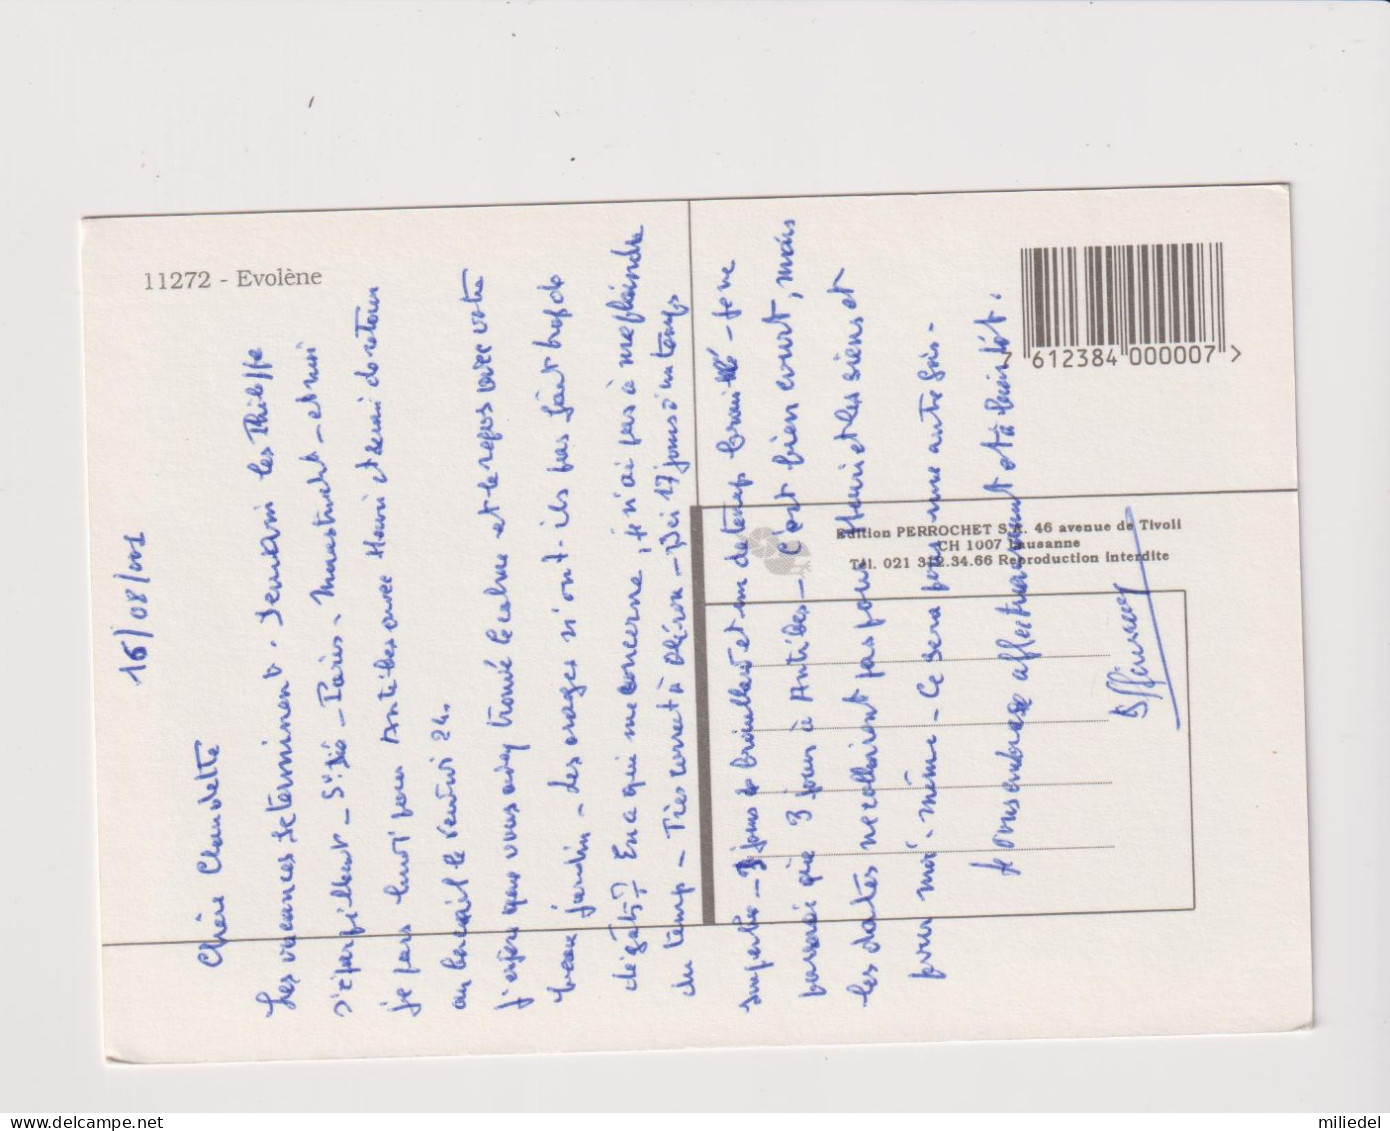 11272 - Evolène
16/08/2001
Chère Claudette
Les vacances se terminent. Demain les Philippe
s'éparpillent - St Dié - Paris - - et moi
je pars lundi pour Antibes avec Henri et serai de retour
au bercail le vendredi 24.
J'espère que vous avez trouvé le calme et le repos avec votre
beau jardin - Les orages n'ont-ils pas fait trop de
dégâts? En ce qui me concerne, je n'ai pas à me plaindre
du temps - Très correct à Oléron - Ici 17 jours d'un temps
superbe - 3 jours de brouillard et un de temps brouillé - Je ne
passerai que 3 jours à Antibes - C'est bien court, mais
les dates ne collaient pas pour Henri et les siens et
pour moi-même - Ce sera pour une autre fois -
Je vous embrasse affectueusement et à bientôt.
7 612384 000007 >
Edition PERROCHET S.A. 46 avenue de Tivoli
CH 1007 Lausanne
Tél. 021 312.34.66 Reproduction interdite
miliedel